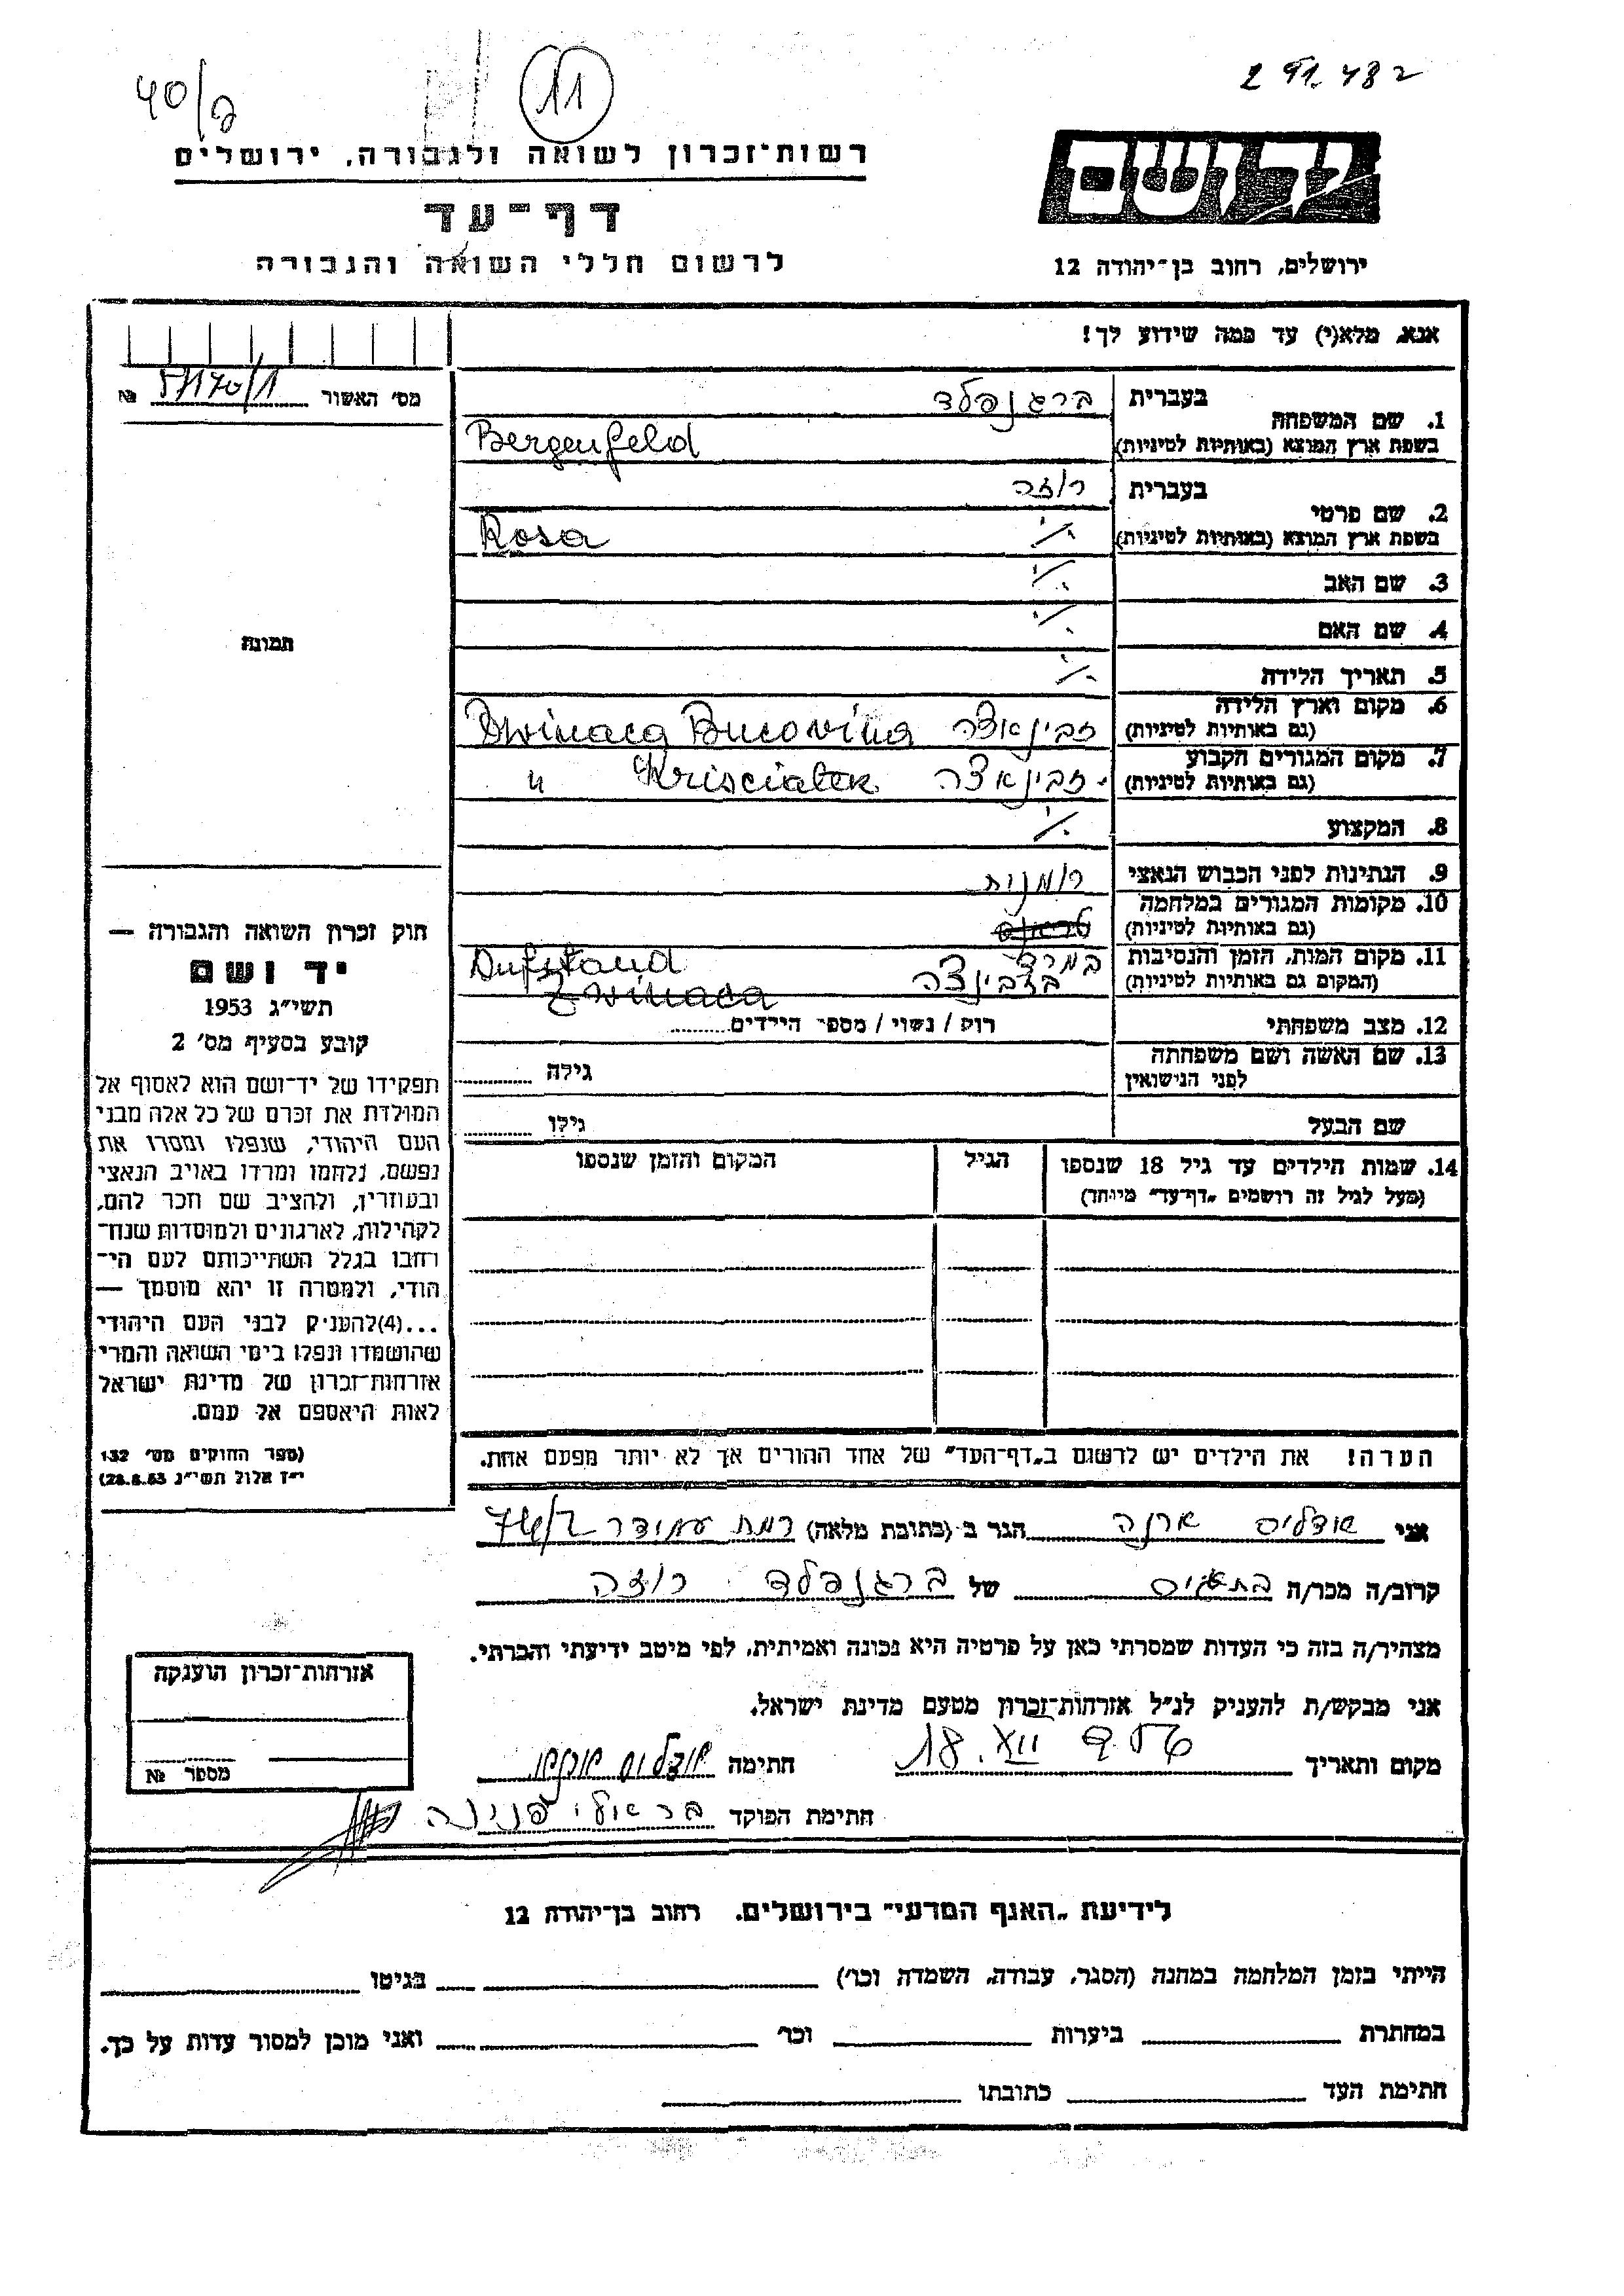 40/ק
11
291.482
רשות־זכרון לשואה ולגבורה, ירושלים
דף־עד
לרשום חללי השואה והגבורה
יד ושם
ירושלים, רחוב בן־יהודה 12
אנא, מלא(י) עד כמה שידוע לך!
מס' האשור 57170/1 №
תמונה
1. שם המשפחה
בעברית ברגנפלד
בשפת ארץ המוצא (באותיות לטיניות) Bergenfeld
2. שם פרטי
בעברית רוזה
בשפת ארץ המוצא (באותיות לטיניות) ./. Rosa
3. שם האב ./.
4. שם האם ./.
5. תאריך הלידה ./.
6. מקום וארץ הלידה
(גם באותיות לטיניות) זבינאצה Dwinaca Bucovina
7. מקום המגורים הקבוע
(גם באותיות לטיניות) זבינאצה Krisciatek "
8. המקצוע ./.
9. הנתינות לפני הכבוש הנאצי רומנית
10. מקומות המגורים במלחמה
(גם באותיות לטיניות)
11. מקום המות, הזמן והנסיבות במרד Aufstand
(המקום גם באותיות לטיניות) בזבינצה Zwinaca
12. מצב משפחתי רווק / נשוי / מספר הילדים
13. שם האשה ושם משפחתה
לפני הנישואין
גילה
שם הבעל גילו
14. שמות הילדים עד גיל 18 שנספו הגיל המקום והזמן שנספו
(מעל לגיל זה רושמים „דף־עד" מיוחד)
הערה! את הילדים יש לרשום ב„דף־העד" של אחד ההורים אך לא יותר מפעם אחת.
חוק זכרון השואה והגבורה —
יד ושם
תשי"ג 1953
קובע בסעיף מס' 2
תפקידו של יד־ושם הוא לאסוף אל
המולדת את זכרם של כל אלה מבני
העם היהודי, שנפלו ומסרו את
נפשם, נלחמו ומרדו באויב הנאצי
ובעוזריו, ולהציב שם וזכר להם,
לקהילות, לארגונים ולמוסדות שנח־
רבו בגלל השתייכותם לעם הי־
הודי, ולמטרה זו יהא מוסמך —
...(4)להעניק לבני העם היהודי
שהושמדו ונפלו בימי השואה והמרי
אזרחות־זכרון של מדינת ישראל
לאות היאספם אל עמם.
(ספר החוקים מס' 132
י"ז אלול תשי"ג 28.8.53)
אני הגר ב (כתובת מלאה) רמת עמידר 74/2
קרוב/ה מכר/ה של ברגנפלד רוזה
מצהיר/ה בזה כי העדות שמסרתי כאן על פרטיה היא נכונה ואמיתית, לפי מיטב ידיעתי והכרתי.
אני מבקש/ת להעניק לנ"ל אזרחות־זכרון מטעם מדינת ישראל.
מקום ותאריך 18. חתימה
חתימת הפוקד בראולי פנינה
אזרחות־זכרון הוענקה
מספר №
לידיעת „האגף המדעי" בירושלים. רחוב בן־יהודה 12
הייתי בזמן המלחמה במחנה (הסגר, עבודה, השמדה וכו') בגיטו
במחתרת ביערות וכו' ואני מוכן למסור עדות על כך.
חתימת העד כתובתו